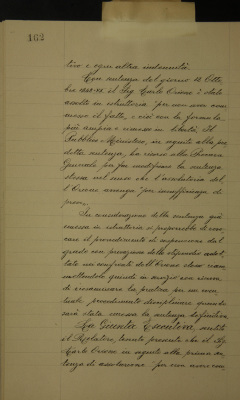 162
tivo e ogni altra indennità.
Con sentenza del giorno 12 Otto
bre il Sig. Carlo Orione è stato
assolto in istruttoria "per non aver com
messo il fatto, e così con la formula
più ampia e rimesso in libertà. Il
Pubblico Ministero, in seguito alla pre
detta sentenza, ha
Generale per far modificare la sentenza
stessa nel senso che l'assoluzione del
l'Orione avvenga "per insufficienza di
prove.
In considerazione della sentenza già
emessa in istruttoria si proporrebbe di revo
care il procedimento di sospensione dal
grado con privazione dello stipendio adot
tato nei confronti dell'Orione stesso riam
mettendolo quindi in servizio con riserva
di riesaminare la pratica per un even
tuale procedimento disciplinare quando
sarà stata emessa la sentenza definitiva
La Giunta Esecutiva, sentito
il Relatore, tenuto presente che il Sig.
Carlo Orione in seguito alla prima sen
tenza di assoluzione "per non aver com